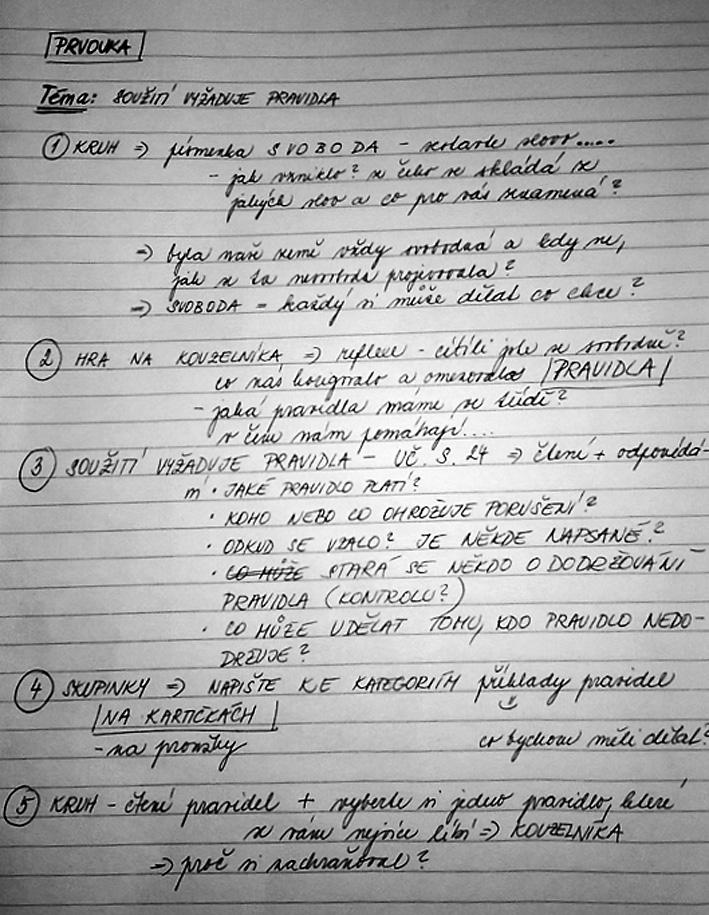 PRVOUKA
Téma: SOUŽITÍ VYŽADUJE PRAVIDLA
1 KRUH => písmenka SVOBODA - sestavte slovo.....
- jak vzniklo? z čeho se skládá z
jakých slov a co pro vás znamená?
=> byla naše země vždy svobodná a kdy ne,
jak se ta nesvoboda projevovala?
=> SVOBODA = každý si může dělat co chce?
2 HRA NA KOUZELNÍKA => reflexe - cítili jste se svobodně?
co nás korigovalo a omezovalo PRAVIDLA
- jaká pravidla máme ve třídě?
v čem nám pomáhají....
3 SOUŽITÍ VYŽADUJE PRAVIDLA - UČ. S. 24 => čtení + odpovědá-
ní • JAKÉ PRAVIDLO PLATÍ?
• KOHO NEBO CO OHROŽUJE PORUŠENÍ?
• ODKUD SE VZALO? JE NĚKDE NAPSANÉ?
• CO MŮŽE STARÁ SE NĚKDO O DODRŽOVÁNÍ
PRAVIDLA (KONTROLU?)
• CO MŮŽE UDĚLAT TOMU, KDO PRAVIDLO NEDO-
DRŽUJE?
4 SKUPINKY => NAPIŠTE KE KATEGORIÍM příklady pravidel
NA KARTIČKÁCH
- na proužky co bychom měli dělat?
5 KRUH - čtení pravidel + vyberte si jedno pravidlo, které
se vám nejvíce líbí => KOUZELNÍKA
=> proč si zachraňoval?